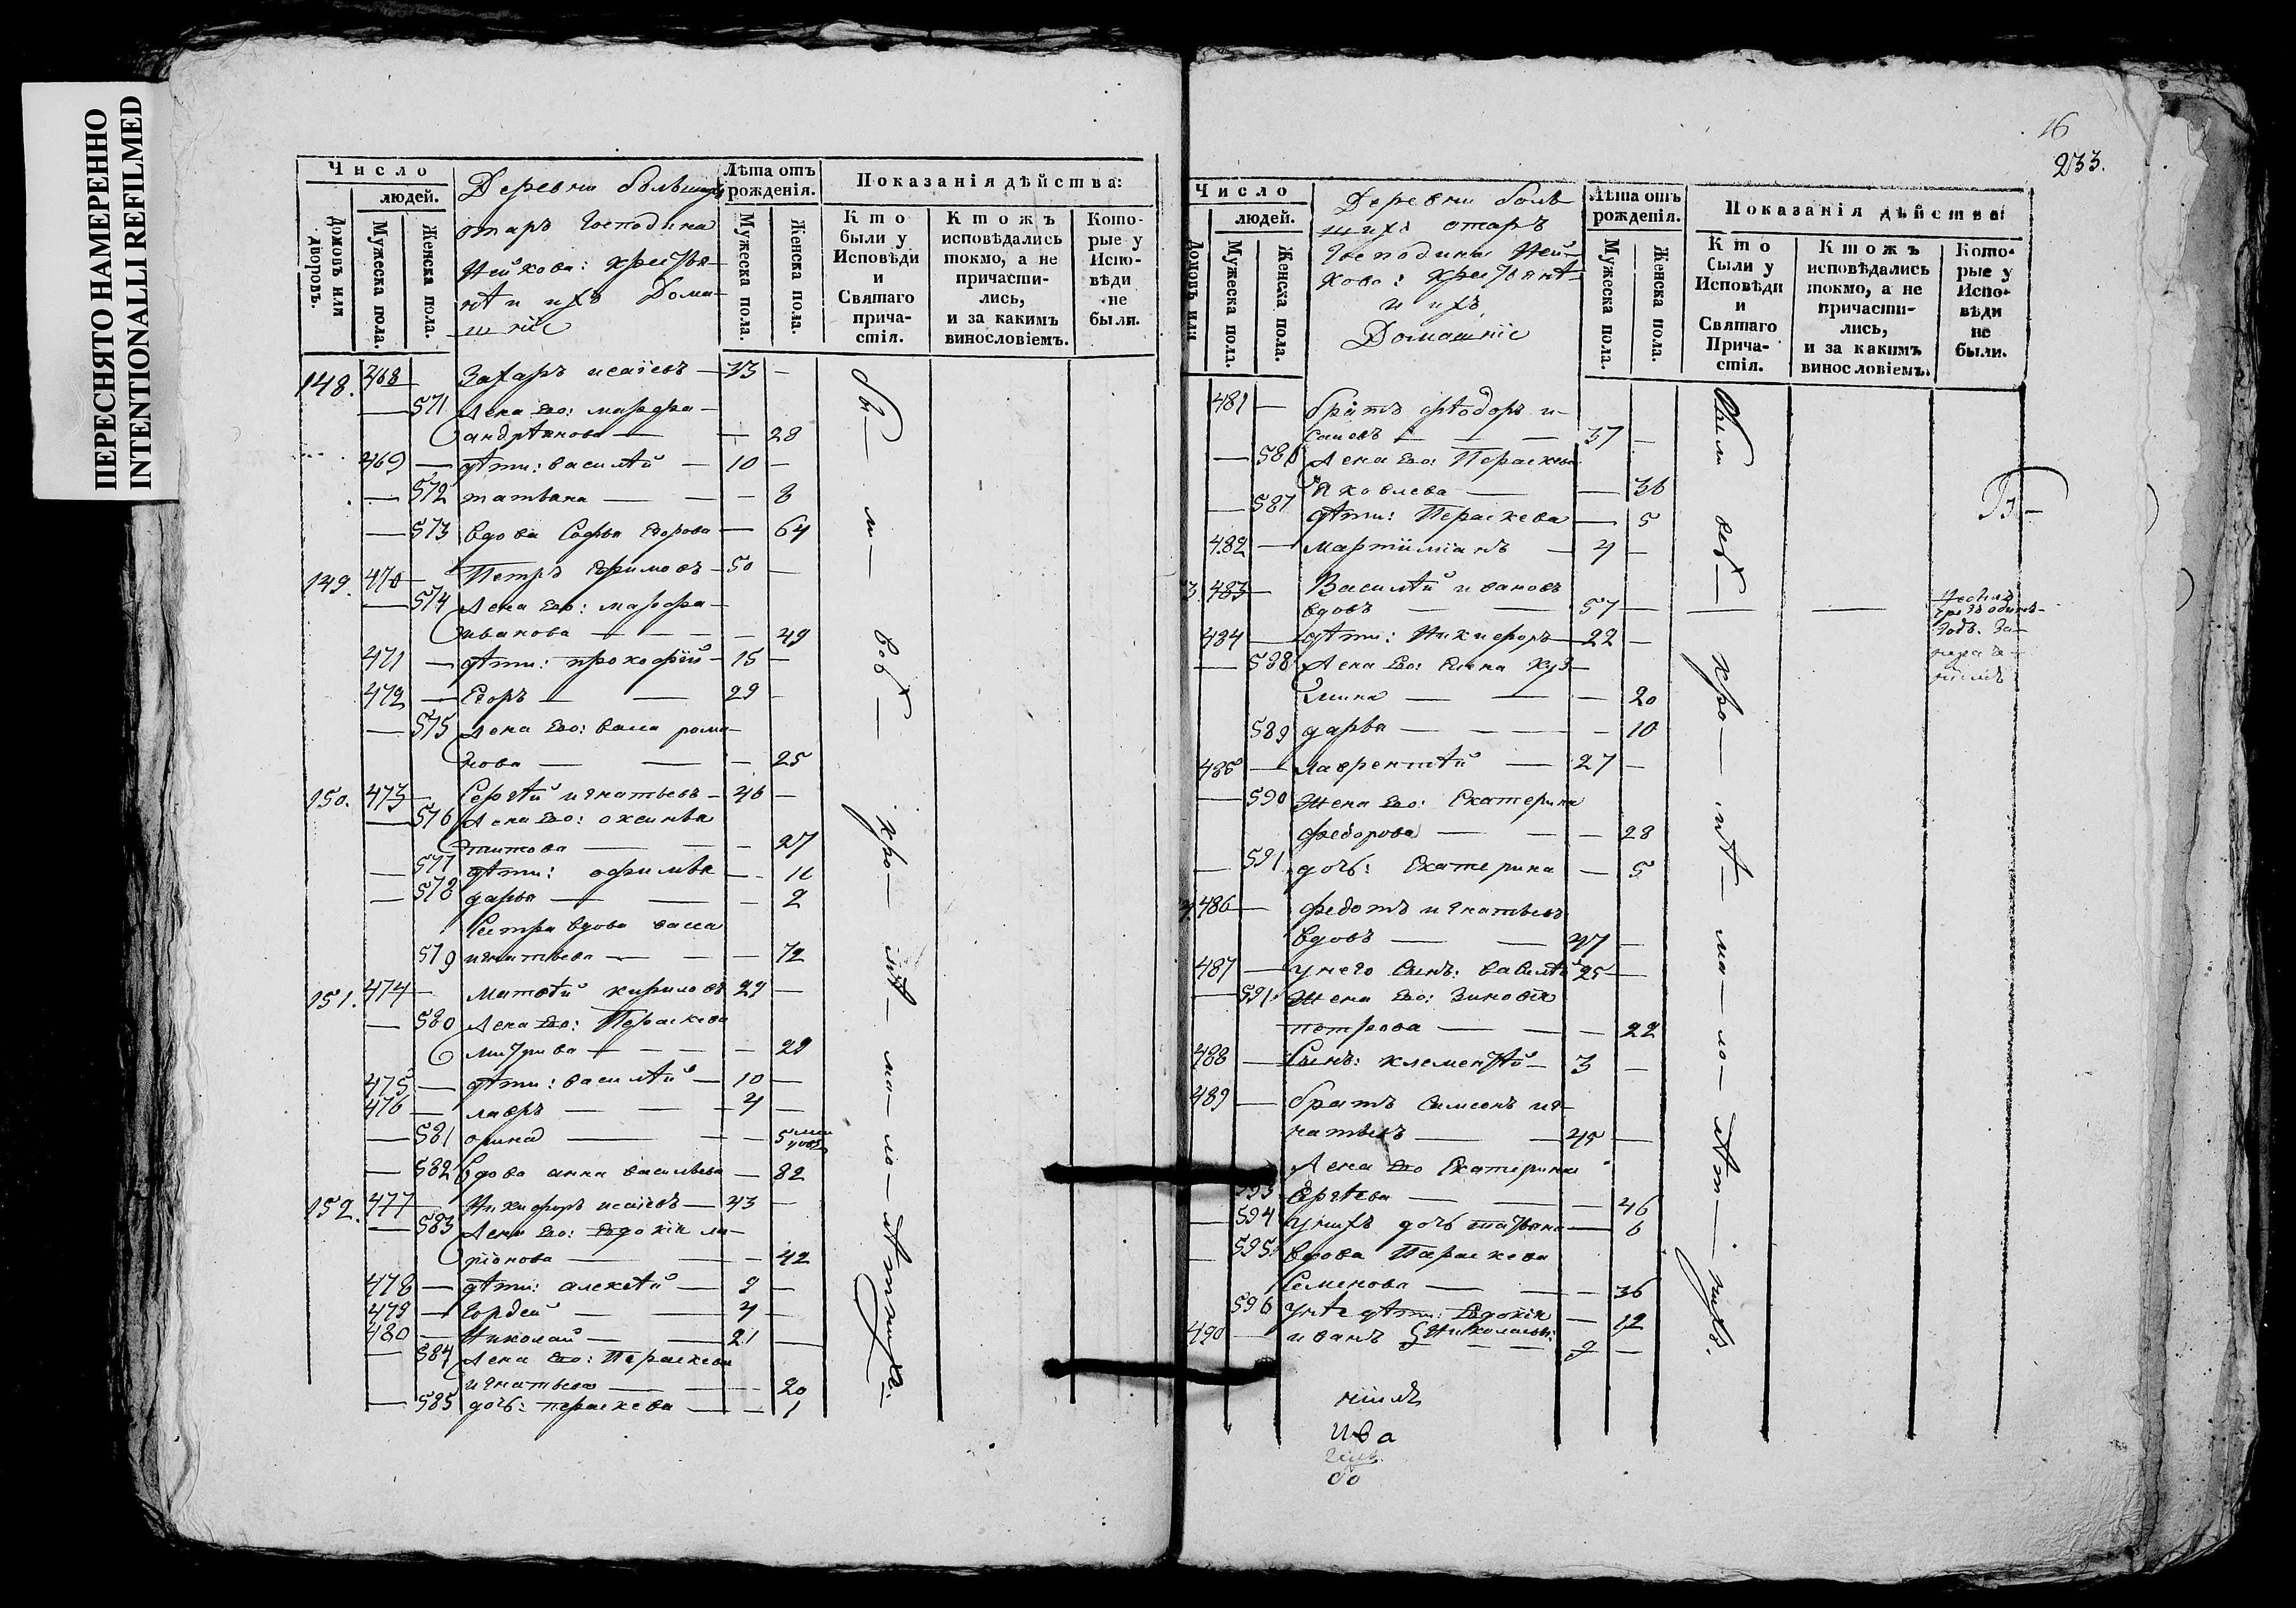 ПЕРЕСНЯТО НАМЕРЕННО
INTENTIONALLI REFILMED
Число
людей.
Домовъ или дворовъ.
Мужеска пола.
Женска пола.
Деревни большихъ
отаръ Господина
крестья-
нѣ и ихъ Дома-
шніе
Лѣта отъ рожденія.
Мужеска пола.
Женска пола.
Показанія дѣйства:
Кто были у Исповѣди и Святаго причастія.
Ктожъ исповѣдались токмо, а не причастились, и за какимъ винословіемъ.
Которые у Исповѣди не были.
148. 468 Захаръ исаіевъ 33
571 Жена Его: марфа
андрѣянова 28
469 дѣти: василѣй 10
572 татьяна 8
573 вдова Софья Егорова 64
149. 470 Петръ Ефимовъ 50
574 Жена Его: марфа
иванова 49
471 дѣти: прокофій 15
472 Егоръ 29
575 Жена Его: васса рома-
нова 25
150. 473 Сергѣй игнатьевъ 46
576 Жена Его: оксинья
титова 27
577 дѣти: офимья 11
578 дарья 2
Сестра вдова васса
579 игнатьева 72
151. 474 Матвѣй кириловъ 29
580 Жена Его: Параскева
29
475 дѣти: василѣй 10
476 лавръ 4
581 орина 5
582 вдова анна васильева 82
152. 477 Никифоръ исаіевъ 43
583 Жена Его: Евдокія ла-
ріонова 42
478 дѣти: алексѣй 9
479 Гордей 4
480 Николай 21
584 Жена Его: Параскева
игнатьева 20
585 дочь: параскева 1
бы-ли-всѣ-кро-мѣ-ма-ло-лѣтнихъ.
16
233.
Число
людей.
Домовъ или
Мужеска пола.
Женска пола.
Деревни боль-
шихъ отаръ
Господина
крестьянѣ
и ихъ
Домашніе
Лѣта отъ рожденія.
Мужеска пола.
Женска пола.
Показанія дѣйства:
Кто были у Исповѣди и Святаго Причастія.
Ктожъ исповѣдались токмо, а не причастились, и за какимъ винословіемъ.
Которые у Исповѣди не были.
481 братъ фѣодоръ и-
саевъ 37
586 Жена Его: Параскева
Яковлева 36
587 дѣти: Параскева 5
482 мартиміанъ 4
3. 483 Василѣй ивановъ
вдовъ 57
484 дѣти: Никифоръ 22
588 Жена Его: Елена Куз-
мина 20
589 дарья 10
485 лаврентѣй 27
590 Жена Его: Екатерина
федорова 28
591 дочь: Екатерина 5
486 федотъ игнатьевъ
вдовъ 47
487 у него сынъ: василѣй 25
591 Жена Его: Зиновія
петрова 22
488 Сынъ: клементѣй 3
489 братъ Симеонъ иг-
натьевъ 45
Жена Его Екатерина
593 Сергѣева 46
594 у нихъ дочь татьяна 6
595 вдова Параскева
Семенова 36
596 у нѣе дѣти: Евдокія 12
490 иванъ Николаевы 9
Были всѣ-кро-мѣ-ма-ло-лѣт-нихъ.
ива
до